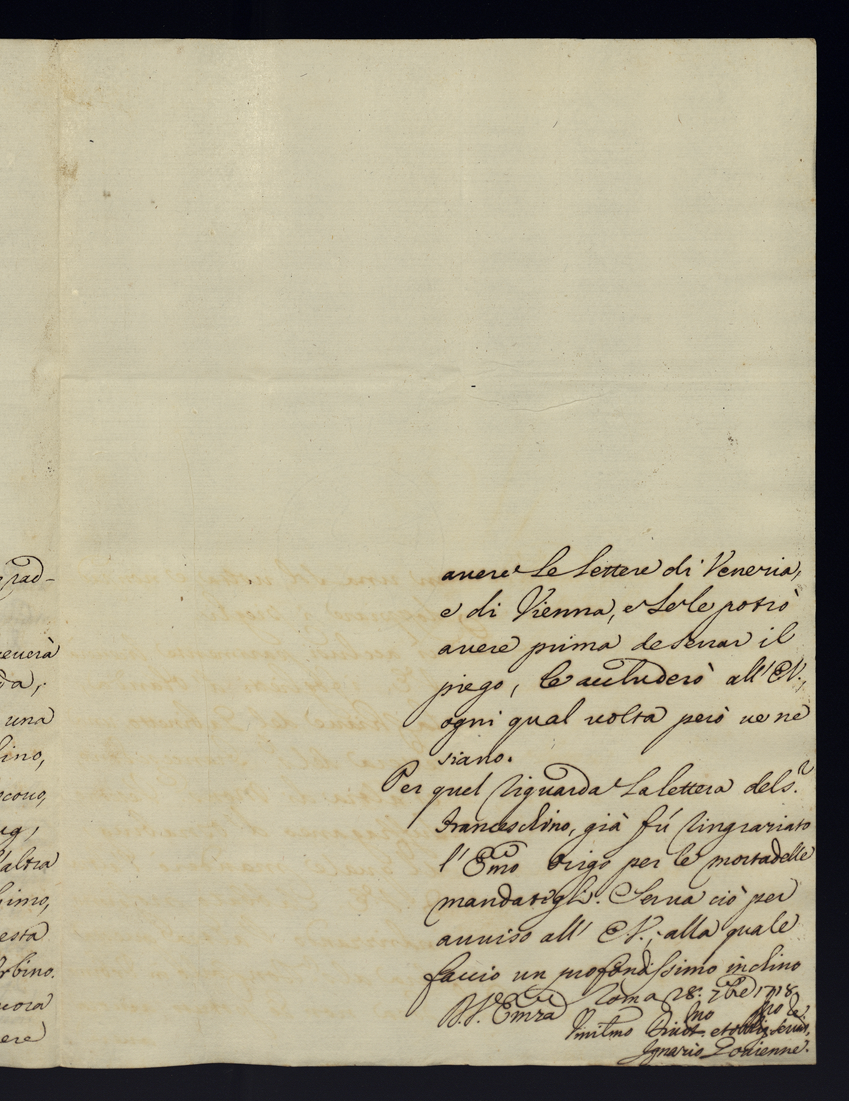 rad-
ceverà
una
lino,
scono,
l'altra
simo,
esta
Urbino.
ancora
ere
avere le lettere di Venezia,
e di Vienna, e se le potrò
avere prima de serrar il
piego, le accluderò all' E.V.,
ogni qual volta però ve ne
siano.
Per quel riguarda la lettera del S.r
Franceschino, già fú ringraziato
l' Emo Origo per le mortadelle
mandategli. Serva ciò per
avviso all' E.V., alla quale
faccio un profondissimo inchino
D.V. Emza Roma 28: 7bre 1718
Vmilmo Divotmo et obligmo ser.
Ignazio